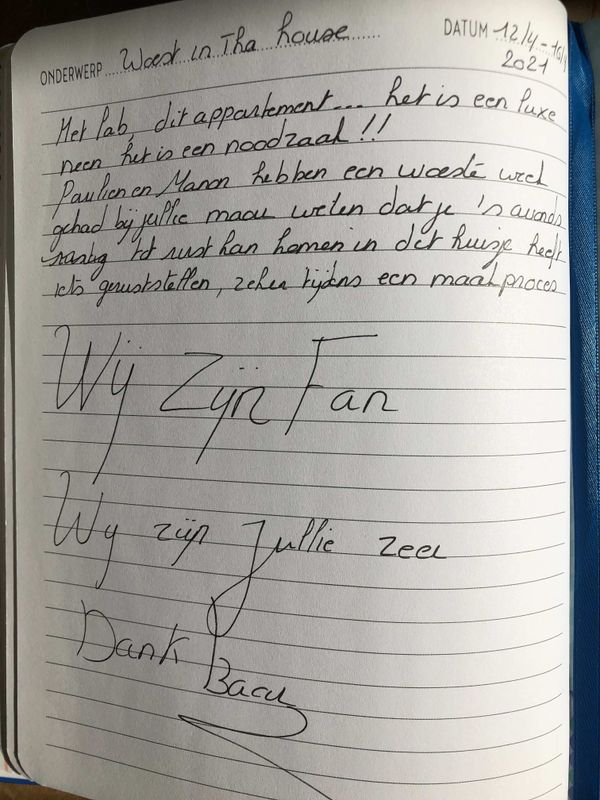 ONDERWERP Woest in Tha house
DATUM 12/4-16/4
2021
Het lab, dit appartement... het is een luxe
neen het is een noodzaak!!
Paulien en Manon hebben een woeste week
gehad bij jullie maar weten dat je 's avonds
rustig tot rust kan komen in dit huisje heeft
iets geruststellen, zeker tijdens een maakproces
Wij Zijn Fan
Wij zijn jullie zeer
Dankbaar